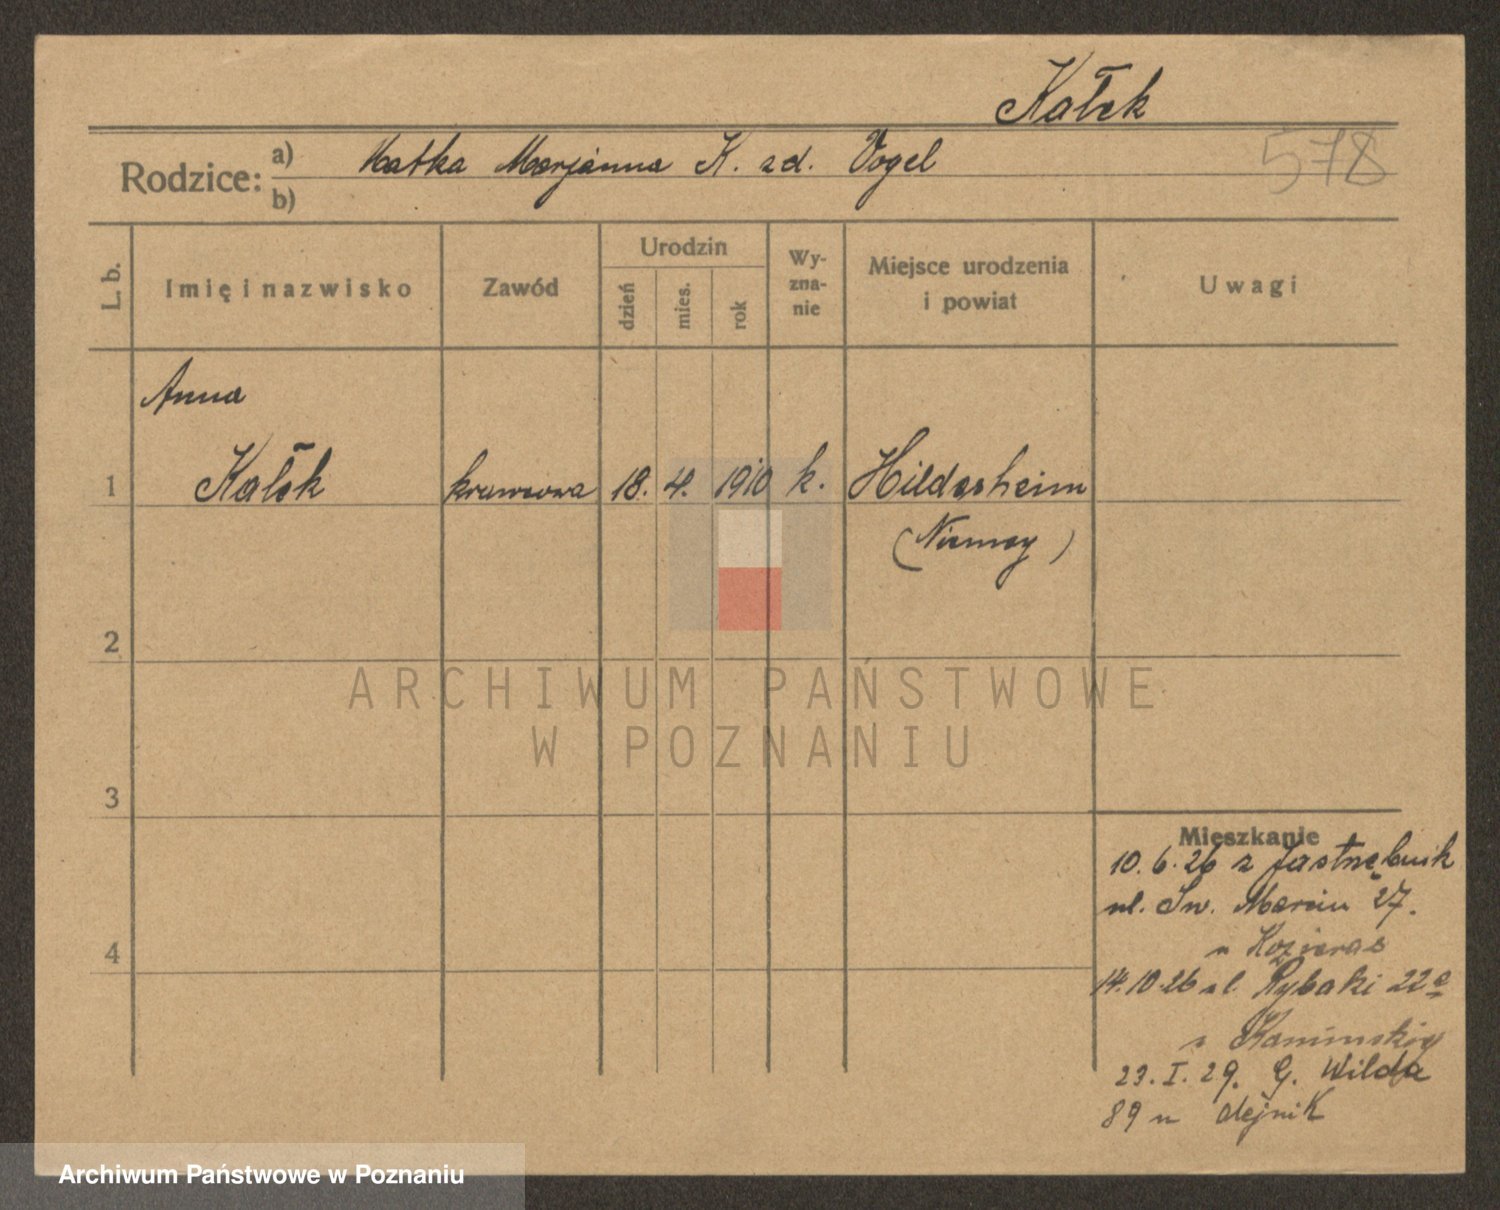 Kałek
578
Rodzice:
a) Matka Marjanna K. zd. Vogel
b)
L. b.
Imię i nazwisko
Zawód
Urodzin
dzień
mies.
rok
Wy-
zna-
nie
Miejsce urodzenia
i powiat
Uwagi
Anna
1 Kałek krawcowa 18. 4. 1910 k. Hildesheim
(Niemcy)
2
ARCHIWUM PAŃSTWOWE
W POZNANIU
3
Mieszkanie
10. 6. 26 z Jastrzębnik
ul. Św. Marcin 27.
u
4
14.10.26 ul. Rybaki 22a
u Kamińskiej
23. I. 29. G. Wilda
89 u Olejnik
Archiwum Państwowe w Poznaniu